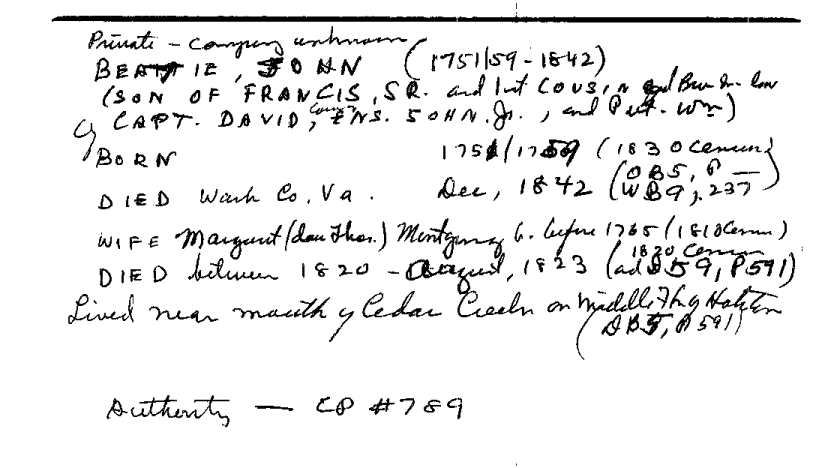 Private - company unknown
BEATTIE, JOHN (1751/59 - 1842)
(SON OF FRANCIS, SR. and 1st COUSIN and Bro-in-law
of CAPT. DAVID, ENS. JOHN. Jr., and Pvt. Wm)
BORN 1751/1759 (1830 Census)
DIED Wash Co. Va. Dec, 1842 (OB5, P — WB9, 237)
WIFE Margaret (dau Thos.) Montgomery b. before 1765 (1810 Census)
1820 Census
DIED between 1820 - August, 1823 (and DB 59, P591)
Lived near mouth of Cedar Creek on Middle Fk of Holston
(DB5, P 591)
Authority — CP #789